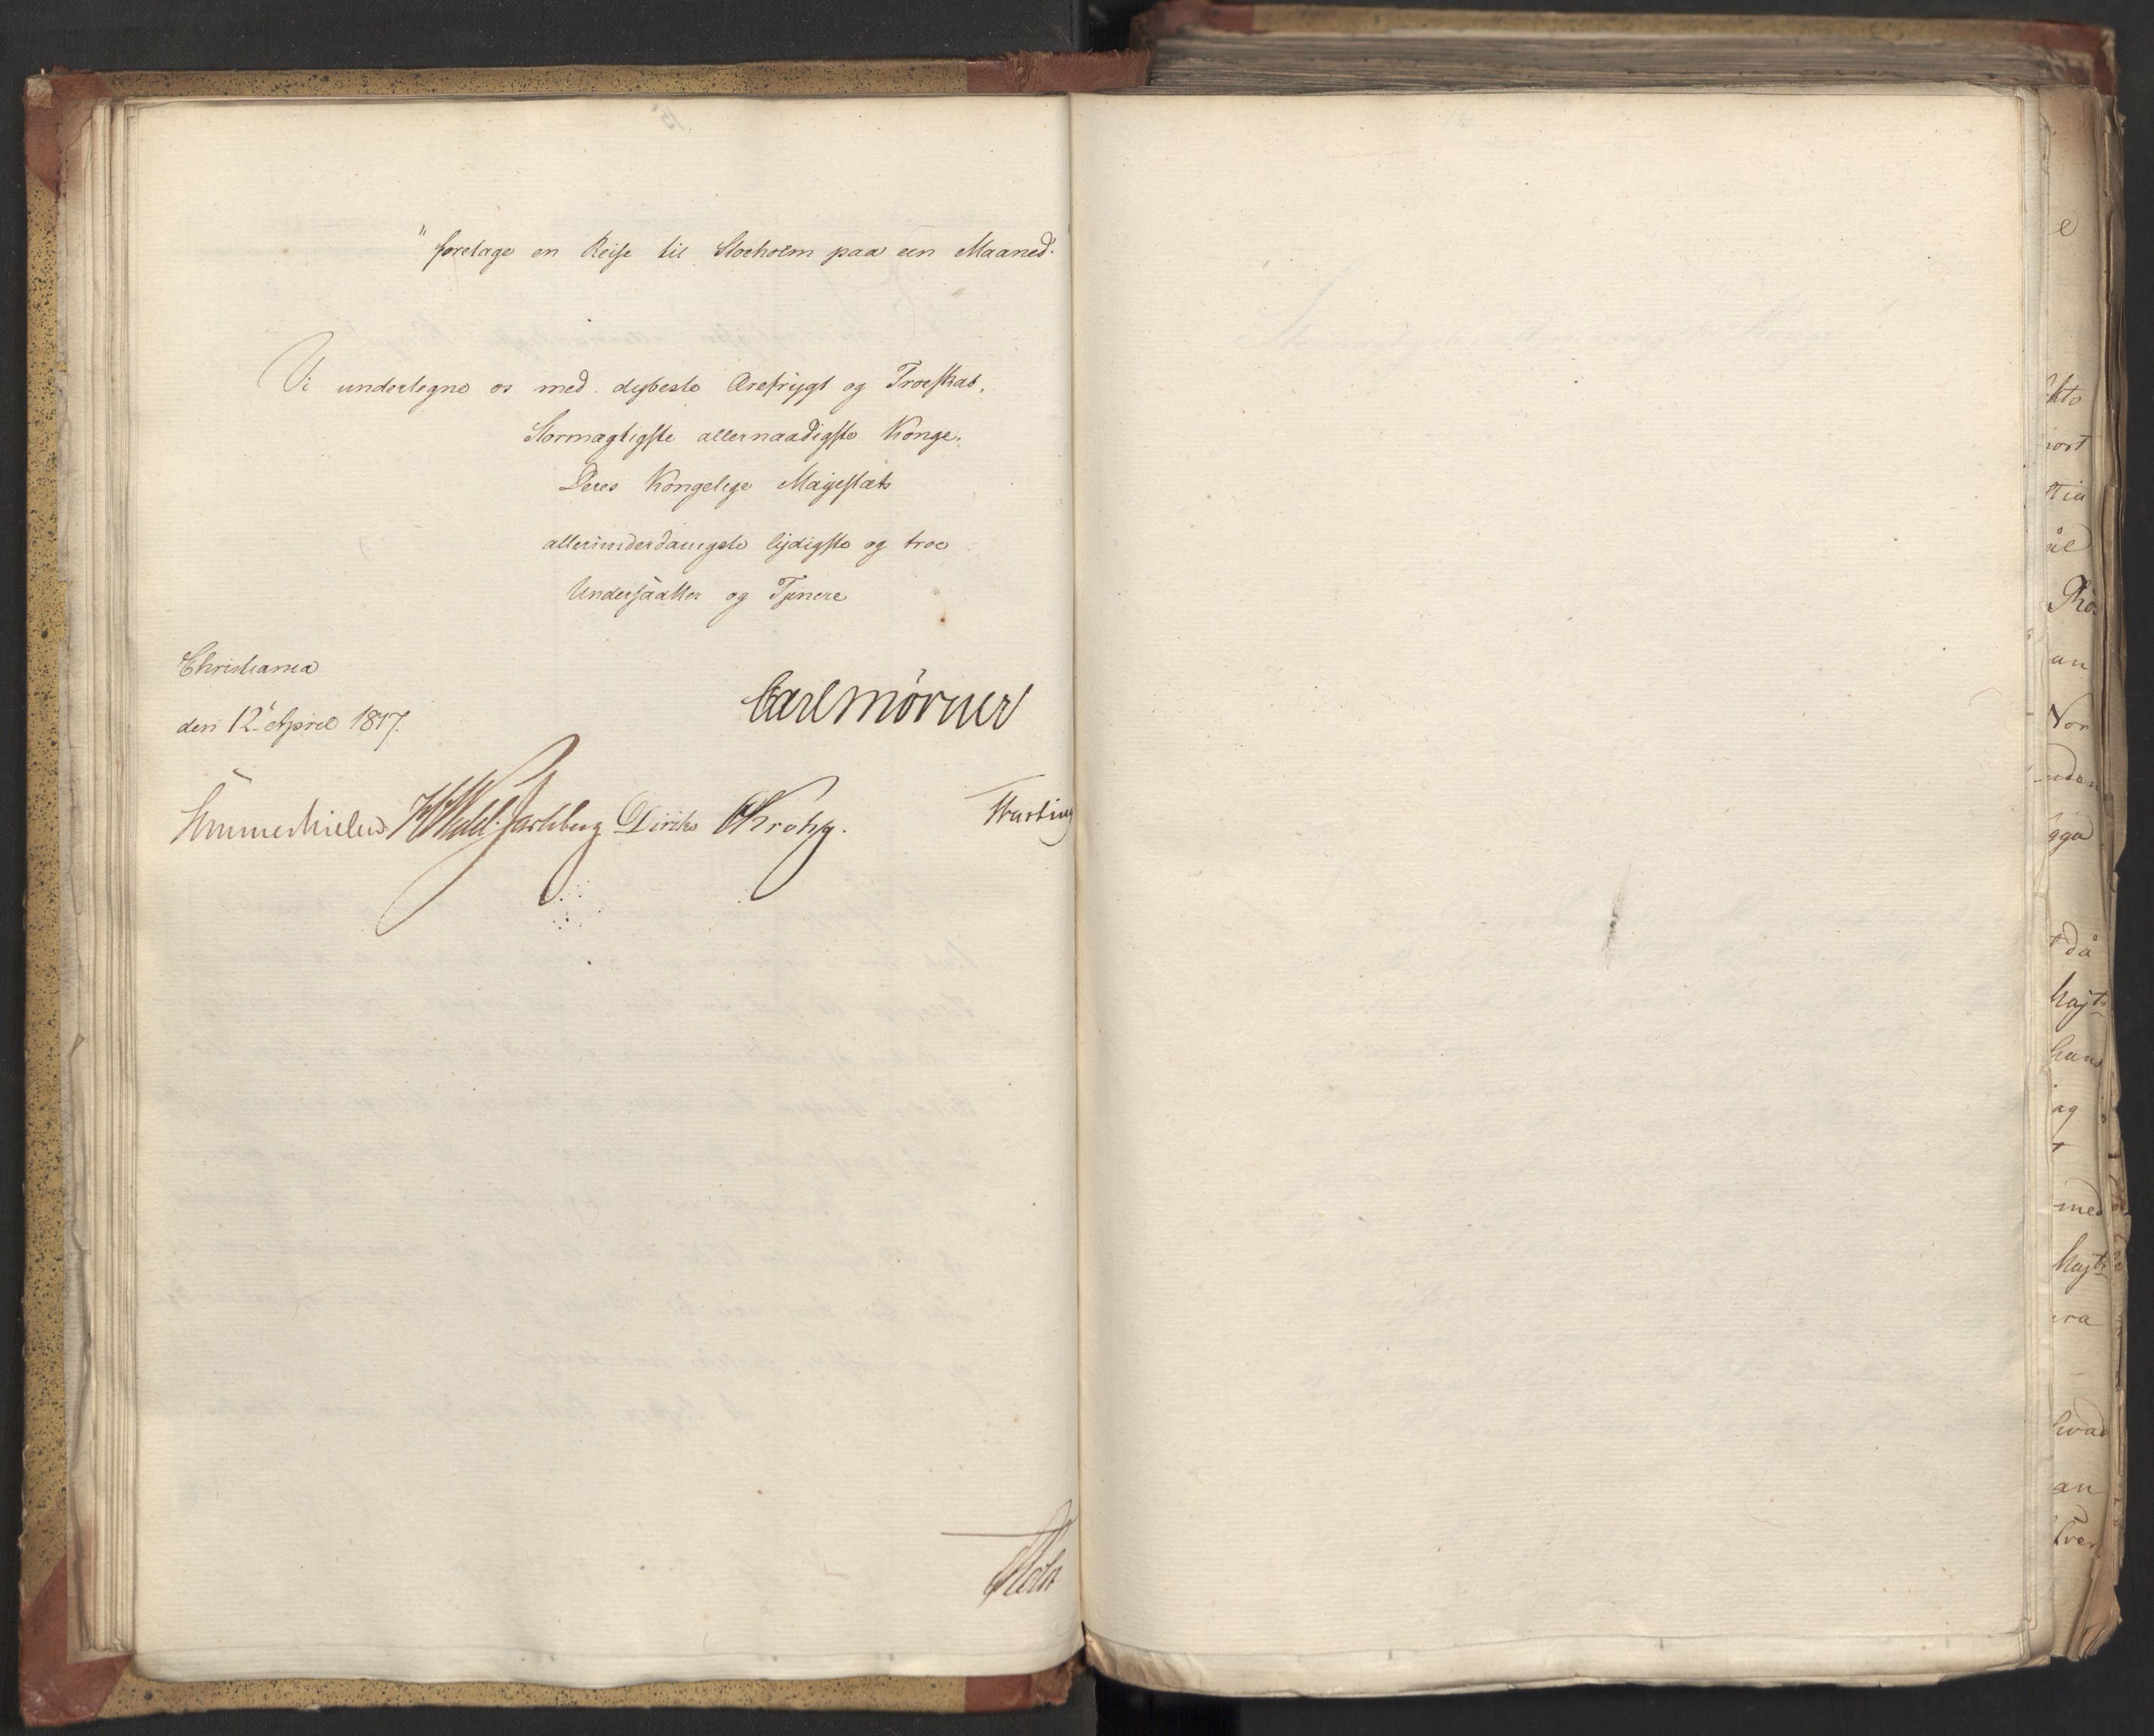 " foretage en Reise til Stocholm paa een Maaned."
Vi undertegne os med dybeste Ærefrygt og Troeskab,
Stormægtigste allernaadigste Konge,
Deres Kongelige Majestæts
allerunderdanigste lydigste og troe
Undersaatter og Tjenere
Christiania
den 12te April 1817.
Carl Mörner
Sommerhielm HWedel-Jarlsberg Diriks CKrohg.
Holst
e
kto
ål
an
Nor
gga
då
Majts
hans
ag
t
med
Majts
era
hvad
an